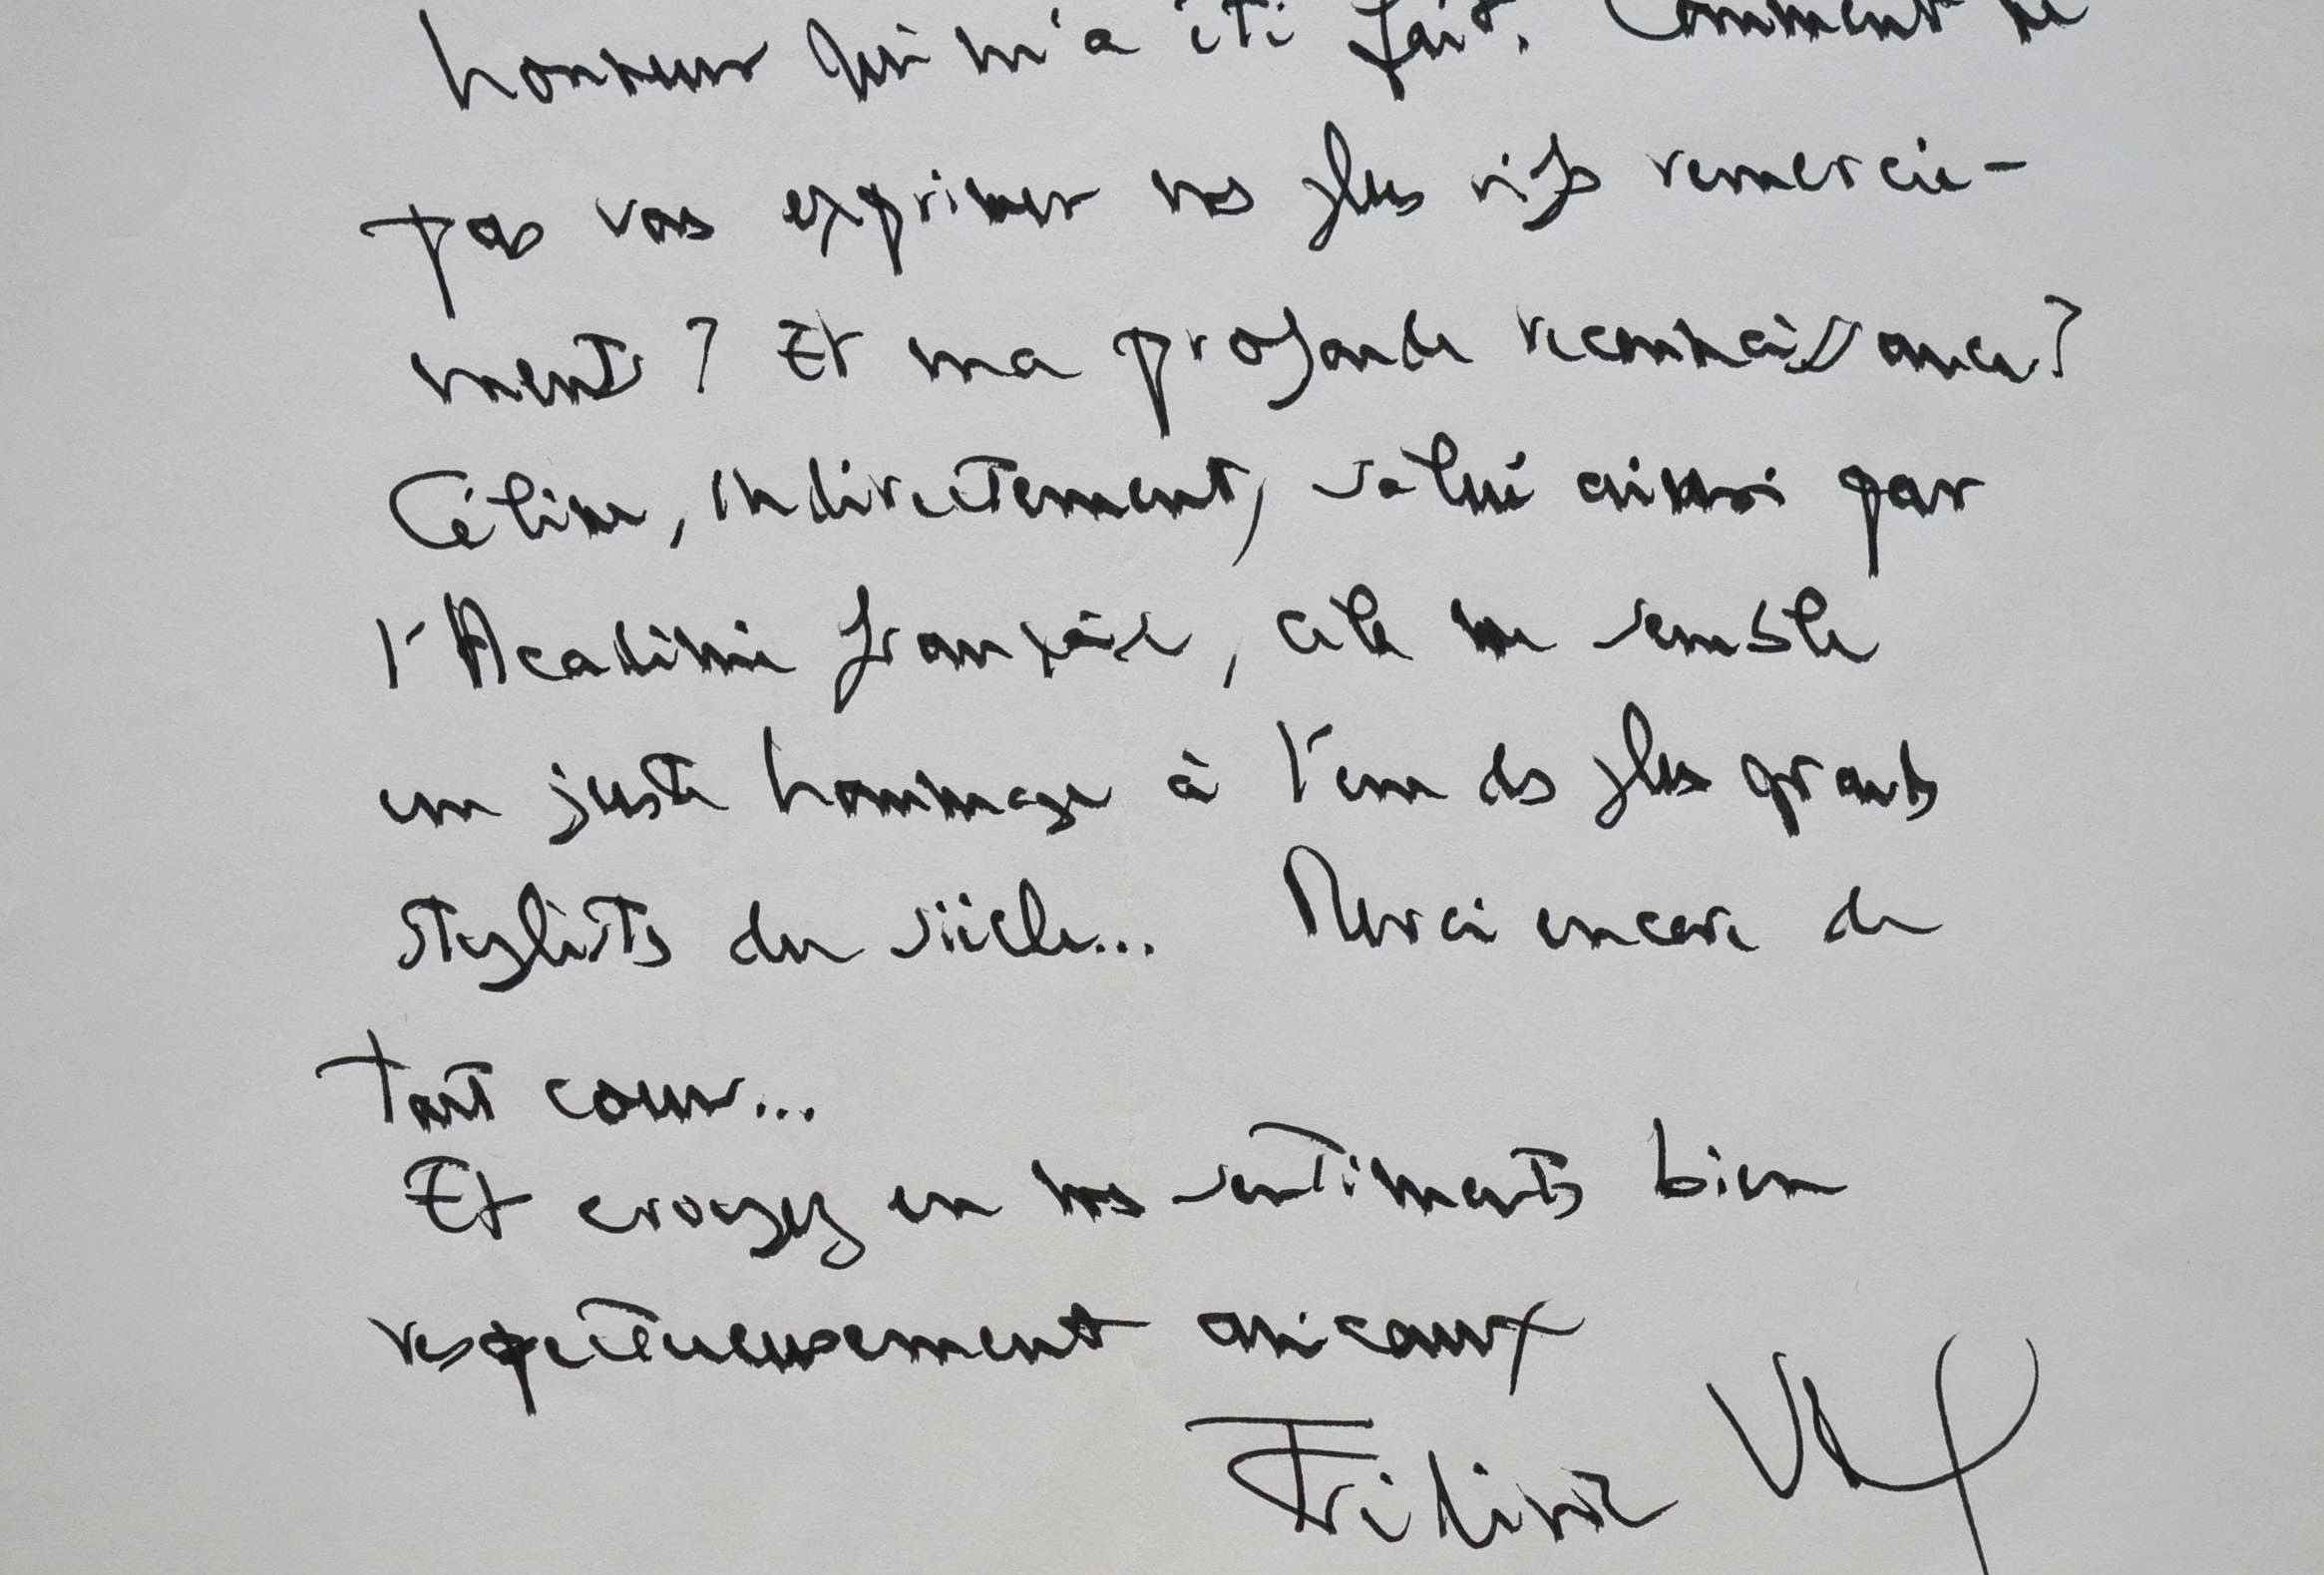 honneur qui m'a été fait. Comment ne
pas vous exprimer mes plus vifs remercie-
ments ? Et ma profonde reconnaissance ?
Céline, indirectement, salué ainsi par
l'Académie française, cela me semble
un juste hommage à l'un des plus grands
stylistes du siècle... Merci encore de
tout cœur...
Et croyez en mes sentiments bien
respectueusement amicaux
Frédéric